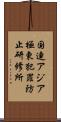 国連アジア
極東犯罪防
止研修所